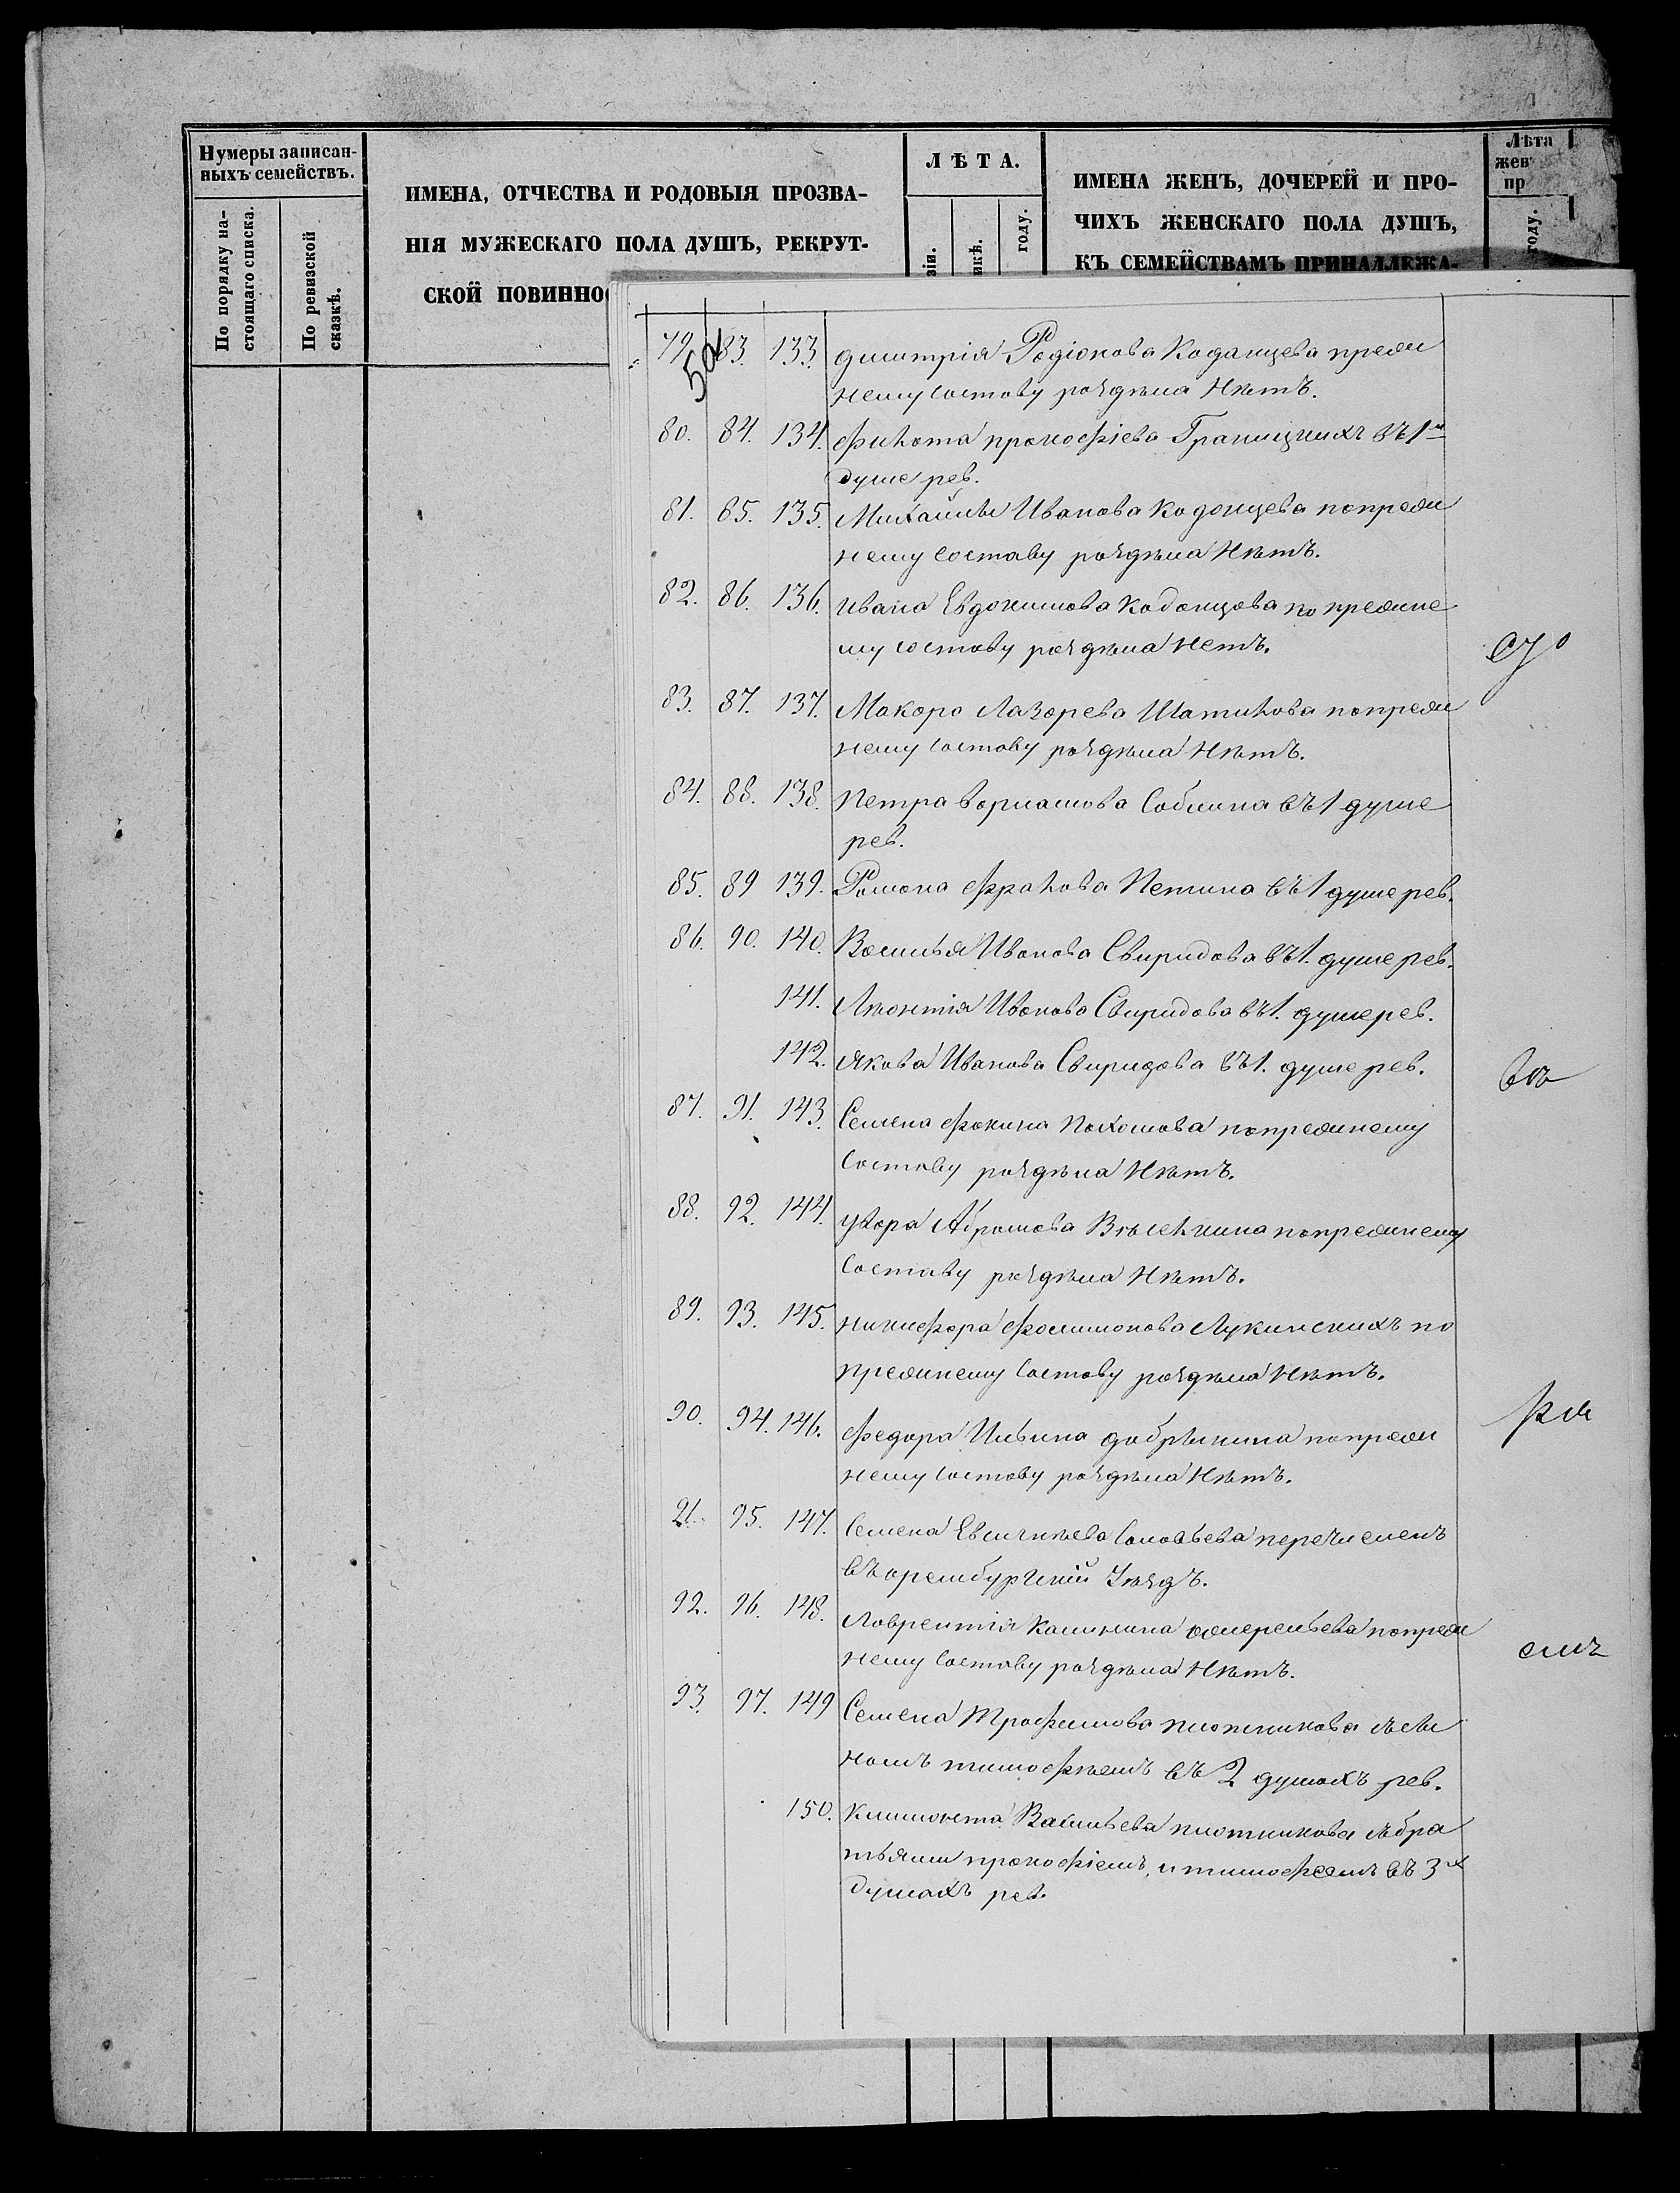 Нумеры записан-
ныхъ семействъ.
По порядку на-
стоящаго списка.
По ревизской
сказкѣ.
ИМЕНА, ОТЧЕСТВА И РОДОВЫЯ ПРОЗВА-
НІЯ МУЖЕСКАГО ПОЛА ДУШЪ, РЕКРУТ-
СКОЙ ПОВИННО
ЛѢТА.
зіи.
икѣ.
году.
ИМЕНА ЖЕНЪ, ДОЧЕРЕЙ И ПРО-
ЧИХЪ ЖЕНСКАГО ПОЛА ДУШЪ,
КЪ СЕМЕЙСТВАМЪ ПРИНАДЛЕЖА-
Лѣта
жен
пр
году.
79. 83. 133. Дмитрія Родіонова Коданцева прежд
нему составу раздѣла Нѣтъ.
80. 84. 134. Филота прокофіева Границкихъ въ 1й
душе рев.
81. 85. 135. Михайлы Иванова Коданцева попреж
нему составу раздѣла Нѣтъ.
82. 86. 136. Ивана Евдокимова Коданцова по прежне
му составу раздѣла Нетъ.
83. 87. 137. Макара Лазарева Шатилова попреж
нему составу раздѣла Нѣтъ.
84. 88. 138. Петра Варламова въ 1 душе
рев.
85. 89 139. Романа Фролова Петина въ 1 душе рев.
86. 90. 140. Василья Иванова Свиридова въ 1. душе рев.
141. Лѣонтія Иванова Свиридова въ 1. душе рев.
142. Якова Иванова Свиридова въ 1. душе рев.
87. 91. 143. Семена Фокина попрежнему
составу раздѣла Нѣтъ.
88. 92. 144. Абрамова попрежнему
составу раздѣла Нѣтъ.
89. 93. 145. Никифора Филимонова Лукинскихъ по
прежнему составу раздѣла Нѣтъ.
90. 94. 146. Федора Ильина Добрынина попреж
нему составу раздѣла Нѣтъ.
91. 95. 147. Семена Соловьева перечисленъ
въ оренбургский Уѣздъ.
92. 96. 148. Лаврентія Калинина попреж
нему составу раздѣла Нѣтъ.
93. 97. 149 Семена Трофимова плотникова
номъ тимофѣемъ въ 2 душахъ рев.
150. Климонта Васильева плотникова збра
тьями прокофіемъ, и тимофеемъ въ 3х
душахъ рев.